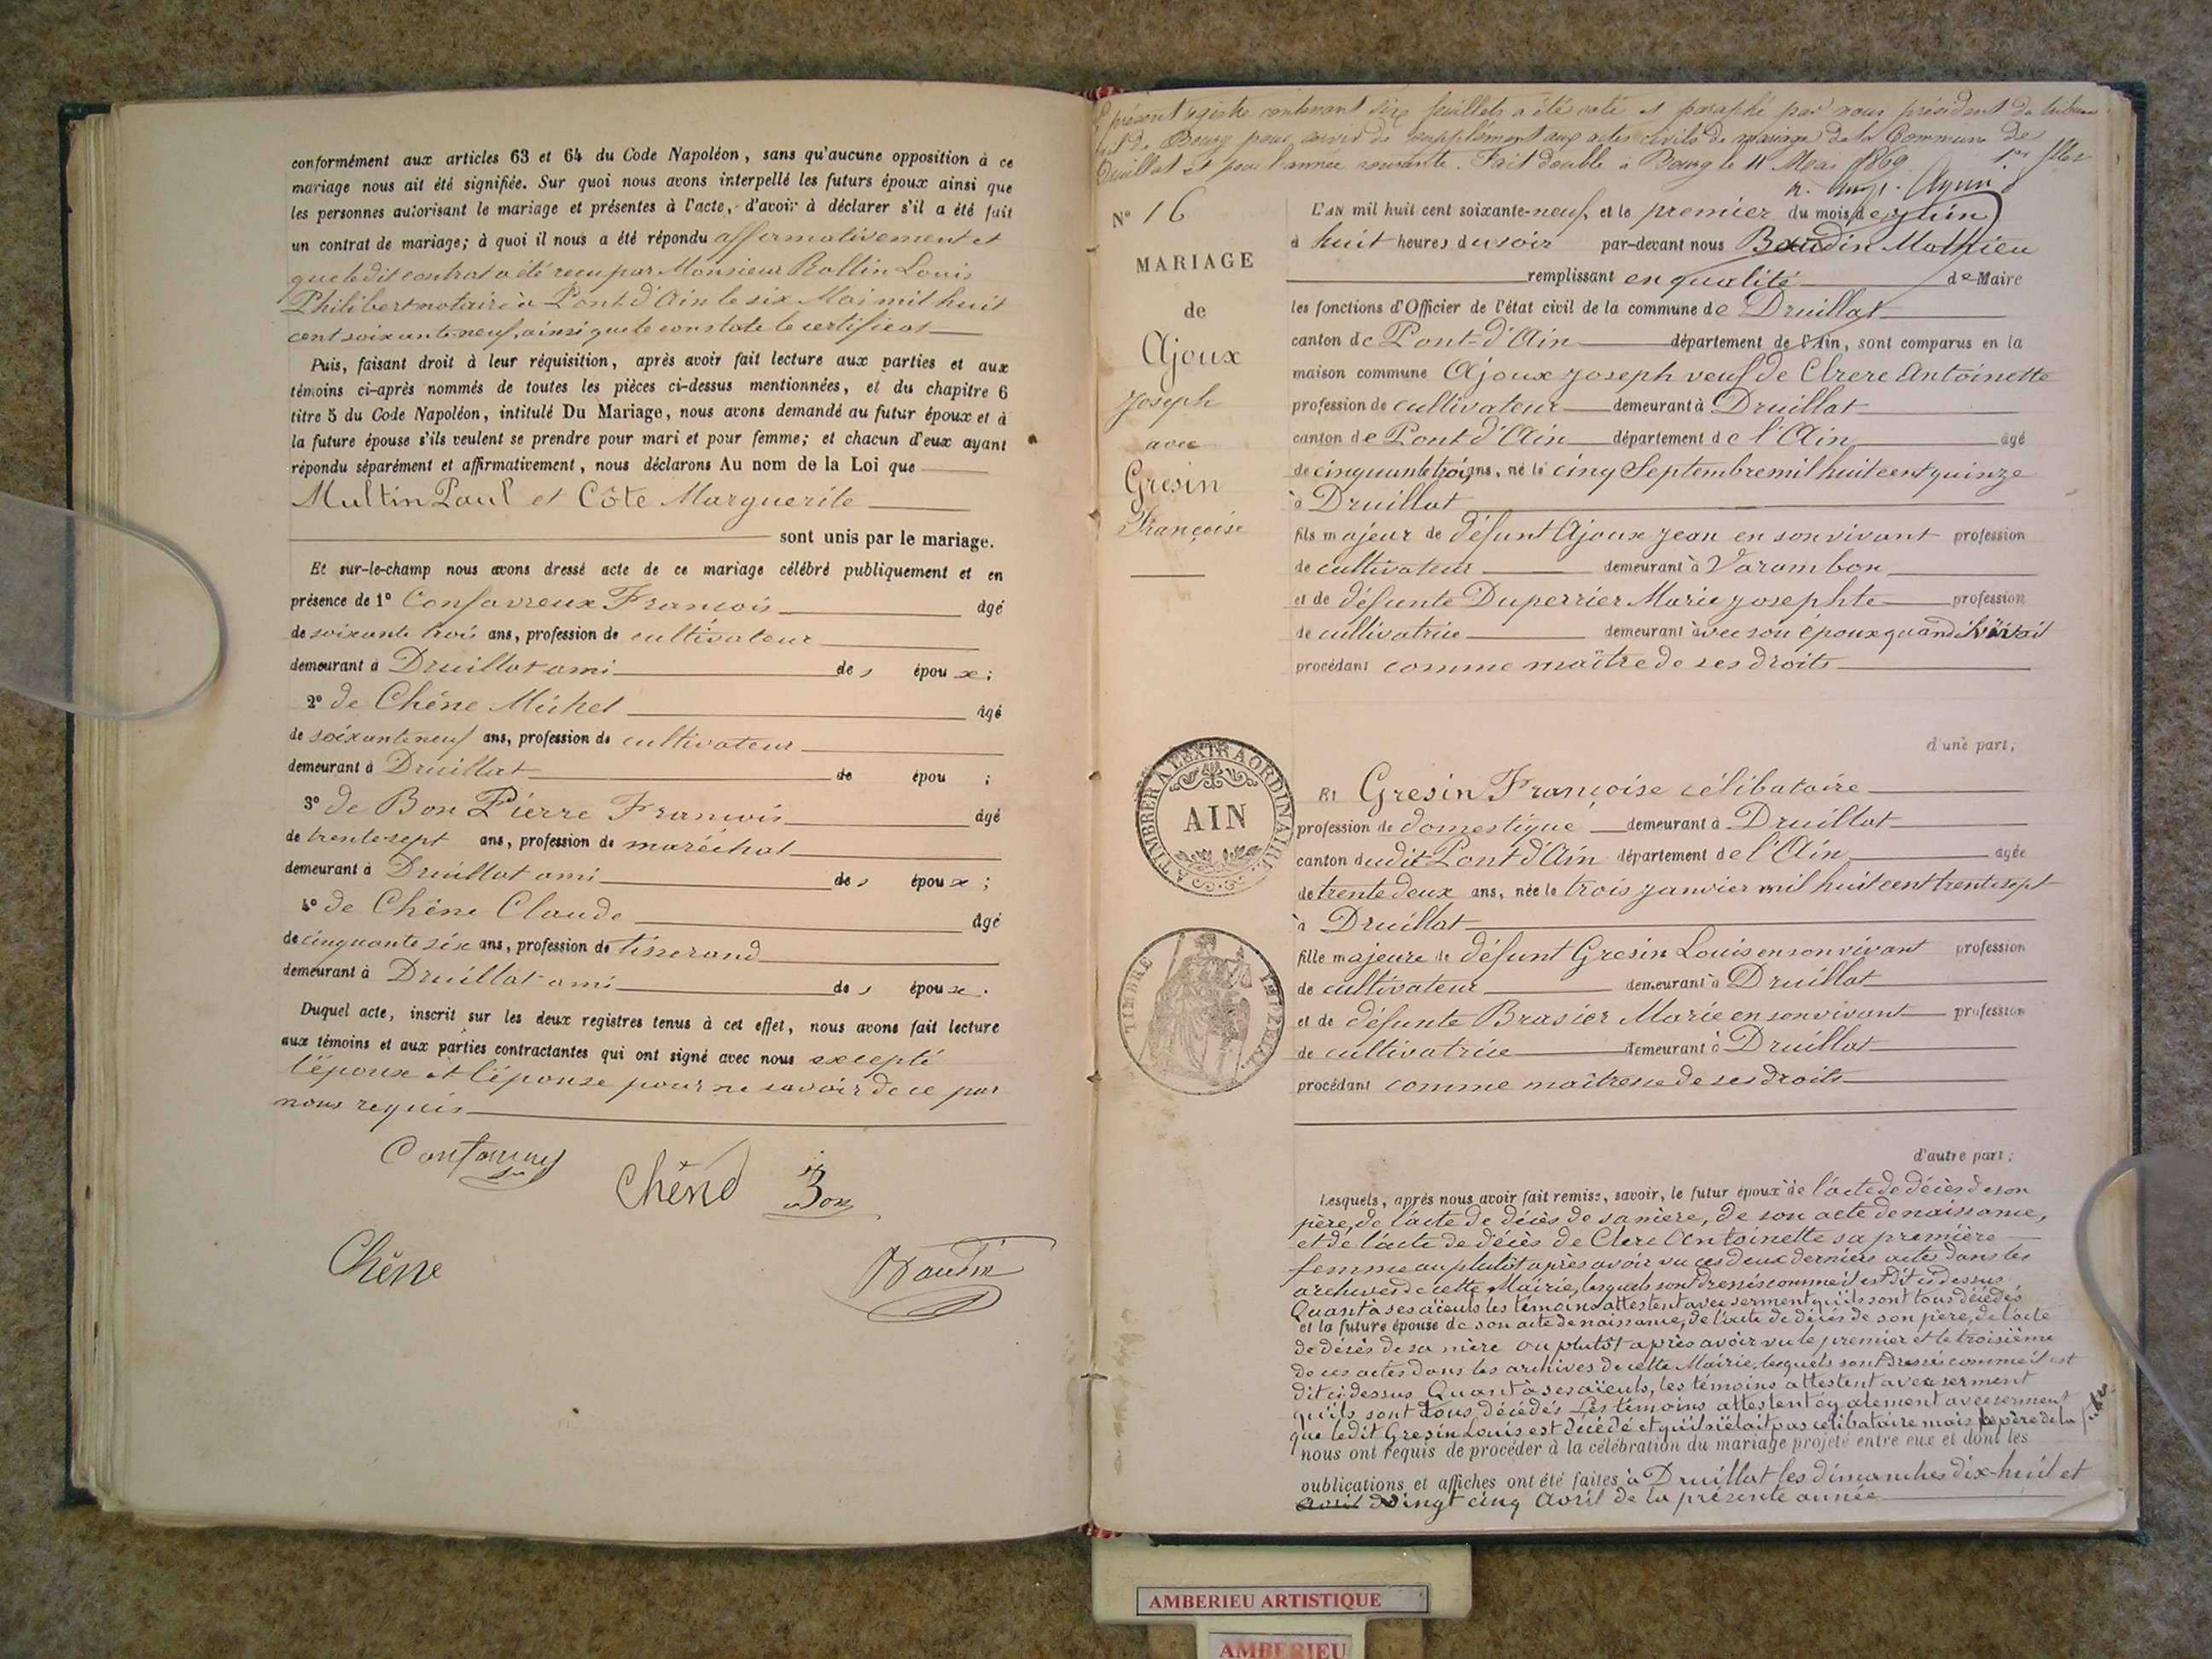 conformément aux articles 63 et 64 du Code Napoléon, sans qu'aucune opposition à ce
mariage nous ait été signifiée. Sur quoi nous avons interpellé les futurs époux ainsi que
les personnes autorisant le mariage et présentes à l'acte, d'avoir à déclarer s'il a été fait
un contrat de mariage; à quoi il nous a été répondu affirmativement et
que ledit contrat a été reçu par Monsieur Rollin Louis
Philibert notaire à Pont d'Ain le six Mai mil huit
cent soixante neuf, ainsi que le constate le certificat
Puis, faisant droit à leur réquisition, après avoir fait lecture aux parties et aux
témoins ci-après nommés de toutes les pièces ci-dessus mentionnées, et du chapitre 6
titre 5 du Code Napoléon, intitulé Du Mariage, nous avons demandé au futur époux et à
la future épouse s'ils veulent se prendre pour mari et pour femme; et chacun d'eux ayant
répondu séparément et affirmativement, nous déclarons Au nom de la Loi que
Multin Paul et Côte Marguerite
sont unis par le mariage.
Et sur-le-champ nous avons dressé acte de ce mariage célébré publiquement et en
présence de 1° Confavreux François âgé
de soixante trois ans, profession de cultivateur
demeurant à Druillat ami des époux;
2° de Chêne Michel âgé
de soixante neuf ans, profession de cultivateur
demeurant à Druillat de épou ;
3° de Bon Pierre François âgé
de trente sept ans, profession de maréchal
demeurant à Druillat ami des époux;
4° de Chêne Claude âgé
de cinquante six ans, profession de tisserand
demeurant à Druillat ami des époux.
Duquel acte, inscrit sur les deux registres tenus à cet effet, nous avons fait lecture
aux témoins et aux parties contractantes qui ont signé avec nous excepté
l'époux et l'épouse pour ne savoir de ce par
nous requis
Chêne Bon
Chêne Baudin
Le présent registre contenant six feuillets a été coté et paraphé par nous président du tribunal
de Bourg pour servir de supplément aux actes civils de mariage de la Commune de
Druillat et pour l'année courante. Fait double à Bourg le 11 Mai 1869
N° 16
MARIAGE
de
Ajoux
Joseph
avec
Gresin
Françoise
L'AN mil huit cent soixante-neuf, et le premier du mois de juin
à huit heures du soir par-devant nous Baudin Mathieu
remplissant en qualité de Maire
les fonctions d'Officier de l'état civil de la commune de Druillat
canton de Pont-d'Ain département de l'Ain, sont comparus en la
maison commune Ajoux Joseph veuf de Clrere Antoinette
profession de cultivateur demeurant à Druillat
canton de Pont d'Ain département de l'Ain âgé
de cinquante trois ans, né le cinq Septembre mil huit cent quinze
à Druillat
fils majeur de défunt Ajoux Jean en son vivant profession
de cultivateur demeurant à Varambon
et de défunte Duperrier Marie Josephte profession
de cultivatrice demeurant avec son époux quand il vivait
procédant comme maître de ses droits
d'une part,
A TIMBRER A L'EXTRAORDINAIRE
AIN
Et Gresin Françoise célibataire
profession de domestique demeurant à Druillat
canton dudit Pont d'Ain département de l'Ain âgée
de trente deux ans, née le trois janvier mil huit cent trente sept
à Druillat
fille majeure de défunt Gresin Louis en son vivant profession
de cultivateur demeurant à Druillat
et de défunte Brasier Marie en son vivant profession
de cultivatrice demeurant à Druillat
procédant comme maîtresse de ses droits
TIMBRE IMPÉRIAL
d'autre part;
Lesquels, après nous avoir fait remise, savoir, le futur époux de l'acte de décès de son
père, de l'acte de décès de sa mère, de son acte de naissance,
et de l'acte de décès de Clere Antoinette sa première
femme ou plutôt après avoir vu ces deux derniers actes dans les
archives de cette Mairie, lesquels sont dressés comme il est dit ci dessus
Quant à ses aïeuls les témoins attestent avec serment qu'ils sont tous décédés
et la future épouse de son acte de naissance, de l'acte de décès de son père, de l'acte
de décès de sa mère ou plutôt après avoir vu le premier et le troisième
de ces actes dans les archives de cette Mairie, lesquels sont dressés comme il est
dit ci dessus Quant à ses aïeuls, les témoins attestent avec serment
qu'ils sont tous décédés Les témoins attestent également avec serment
que ledit Gresin Louis est décédé et qu'il n'était pas célibataire mais le père de la
nous ont requis de procéder à la célébration du mariage projeté entre eux et dont les
publications et affiches ont été faites à Druillat les dimanches dix-huit et
avril vingt cinq Avril de la présente année
AMBERIEU ARTISTIQUE
AMBERIEU